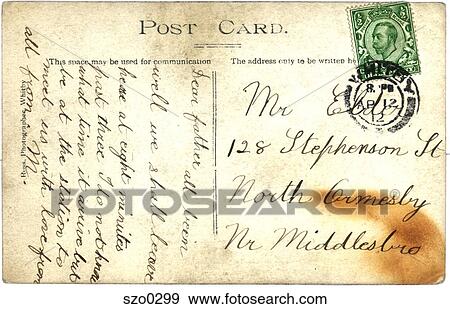 POST CARD.
This space may be used for communication
The address only to be written here
WHITBY
8. PM
AP 12
12
Dear father all been
well we shall leave
here at eight minutes
past three I do not know
what time it arive but
be at the station to
meet us with love from
all from M
Mr
128 Stephenson St
North Ormesby
Nr Middlesbro
FOTOSEARCH
szo0299 www.fotosearch.com